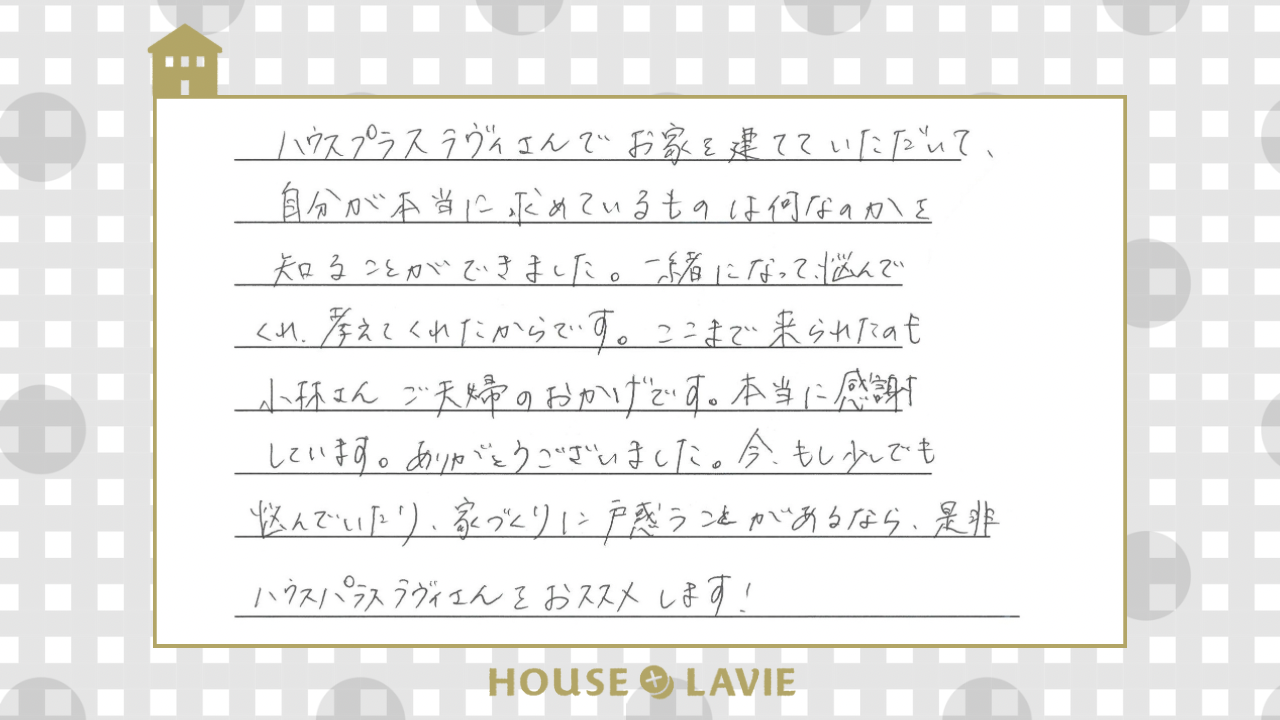 ハウスプラスラヴィさんでお家を建てていただいて、
自分が本当に求めているものは何なのかを
知ることができました。一緒になって、悩んで
くれ、考えてくれたからです。ここまで来られたのも
小林さんご夫婦のおかげです。本当に感謝
しています。ありがとうございました。今、もし少しでも
悩んでいたり、家づくりに戸惑うことがあるなら、是非
ハウスパラスラヴィさんをおススメします!
HOUSE + LAVIE